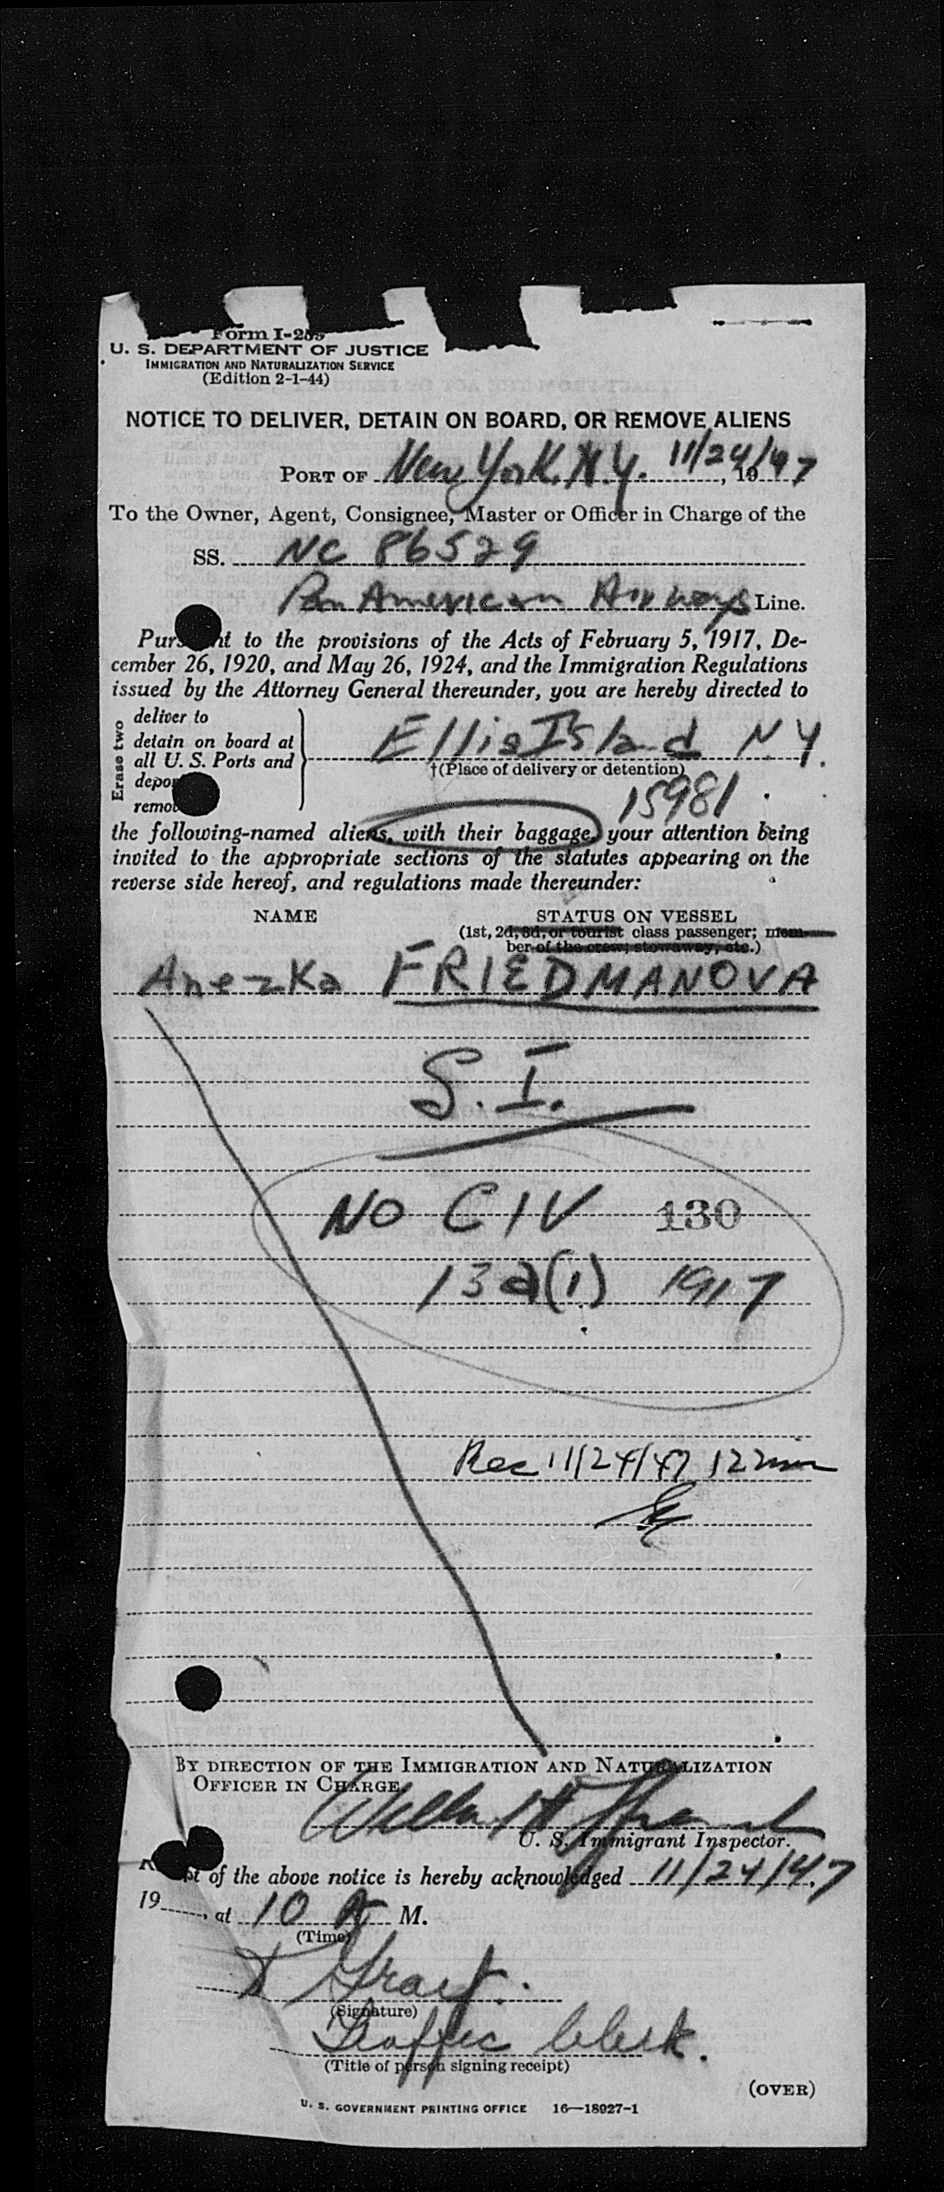 Form I-259
U. S. DEPARTMENT OF JUSTICE
IMMIGRATION AND NATURALIZATION SERVICE
(Edition 2-1-44)
NOTICE TO DELIVER, DETAIN ON BOARD, OR REMOVE ALIENS
PORT OF New York, N.Y. 11/24/, 1947
To the Owner, Agent, Consignee, Master or Officer in Charge of the
SS. NC 86529
Pan American Airways Line.
Pursuant to the provisions of the Acts of February 5, 1917, De-
cember 26, 1920, and May 26, 1924, and the Immigration Regulations
issued by the Attorney General thereunder, you are hereby directed to
Erase two
deliver to
detain on board at
all U. S. Ports and
depo
remo
Ellis Island N Y.
†(Place of delivery or detention)
15981
the following-named aliens, with their baggage, your attention being
invited to the appropriate sections of the statutes appearing on the
reverse side hereof, and regulations made thereunder:
NAME STATUS ON VESSEL
(1st, 2d, 3d, or tourist class passenger; mem-
ber of the crew; stowaway, etc.)
Anezka FRIEDMANOVA
S. I.
NO C I V 130
13a(1) 1917
Rec 11/24/47 12
BY DIRECTION OF THE IMMIGRATION AND NATURALIZATION
OFFICER IN CHARGE.
U. S. Immigrant Inspector.
pt of the above notice is hereby acknowledged 11/24/47,
19, at 10 A M.
(Time)
(Signature)
Traffic Clerk.
(Title of person signing receipt)
(OVER)
U. S. GOVERNMENT PRINTING OFFICE 16—18927-1